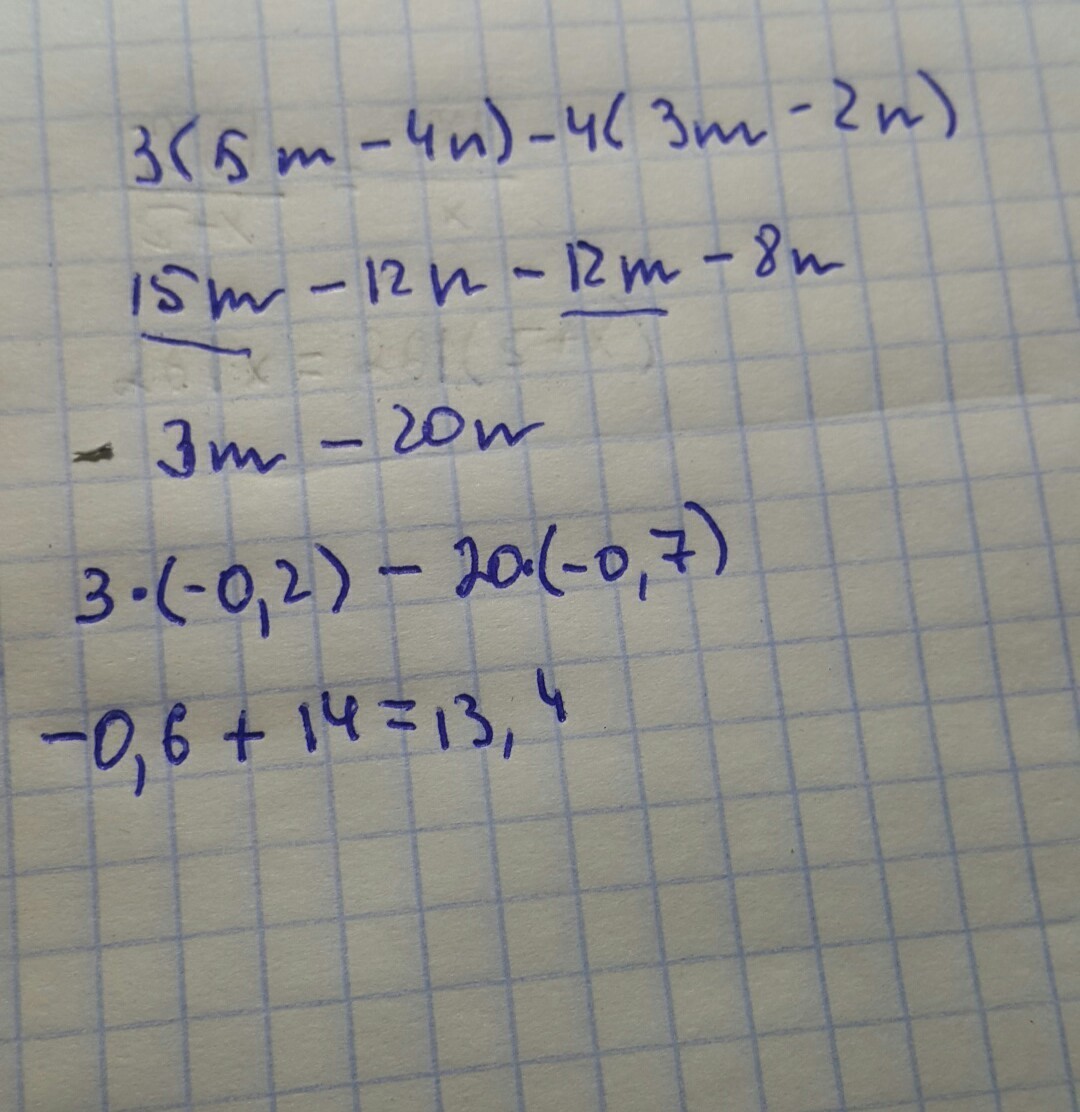 3(5m-4n)-4(3m-2n)
15m-12n-12m-8n
- 3m-20n
3·(-0,2)-20·(-0,7)
-0,6+14=13,4